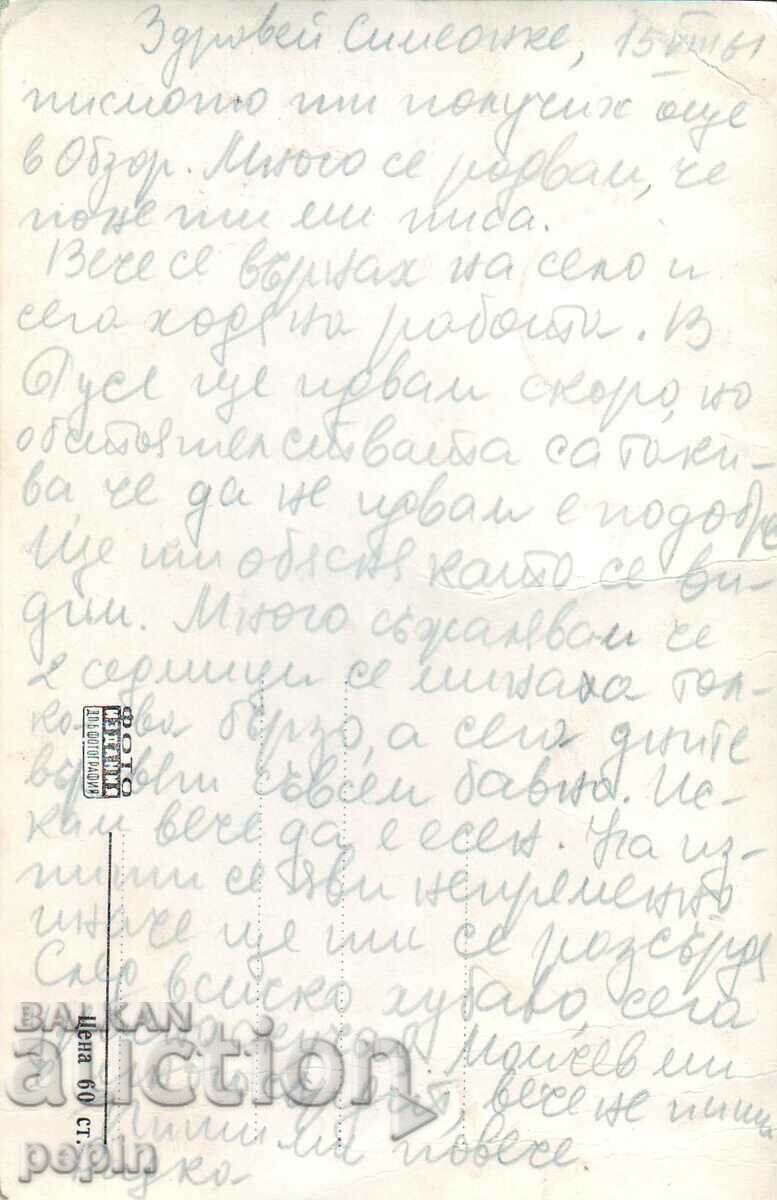 Здравей Симеонке,
писмото ти получих още
в Обзор. Много се радвам, че
поне ти ми писа.
Вече се върнах на село и
сега ходя на работа. В
Русе ще идвам скоро, но
обстоятелствата са таки-
ва, че да не идвам е подобре
Ще ти обясня като се ви-
дим. Много съжалявам че
2 седмици се минаха тол-
кова бързо а сега дните
вървят съвсем бавно. Ис-
кам вече да е есен. На из-
пити се яви непременно
иначе ще ти се разсърдя
След всичко хубаво, сега
Мончев ми
вече не пише
Пиши ми повече.
ФОТО
ДПК ФОТОГРАФИЯ
Цена 60 ст.
BALKAN
auction
pepin